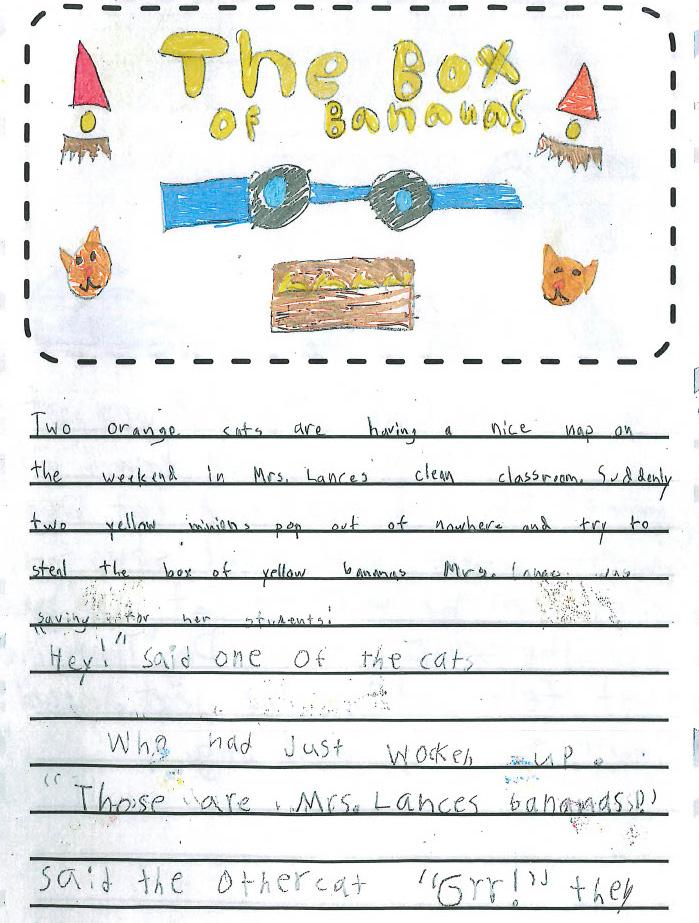 The Box
OF Bananas
Two orange cats are having a nice nap on
the weekend in Mrs. Lances clean classroom. Suddenly
two yellow minions pop out of nowhere and try to
steal the box of yellow bananas Mrs. Lance was
saving for her students!
"Hey!" said one of the cats
Who had Just wocken up.
"Those are Mrs. Lances bananas!"
said the othercat "Grr!" they